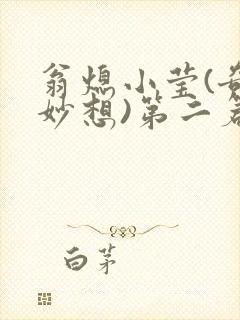 翁熄小莹(
妙想)第二
白茅